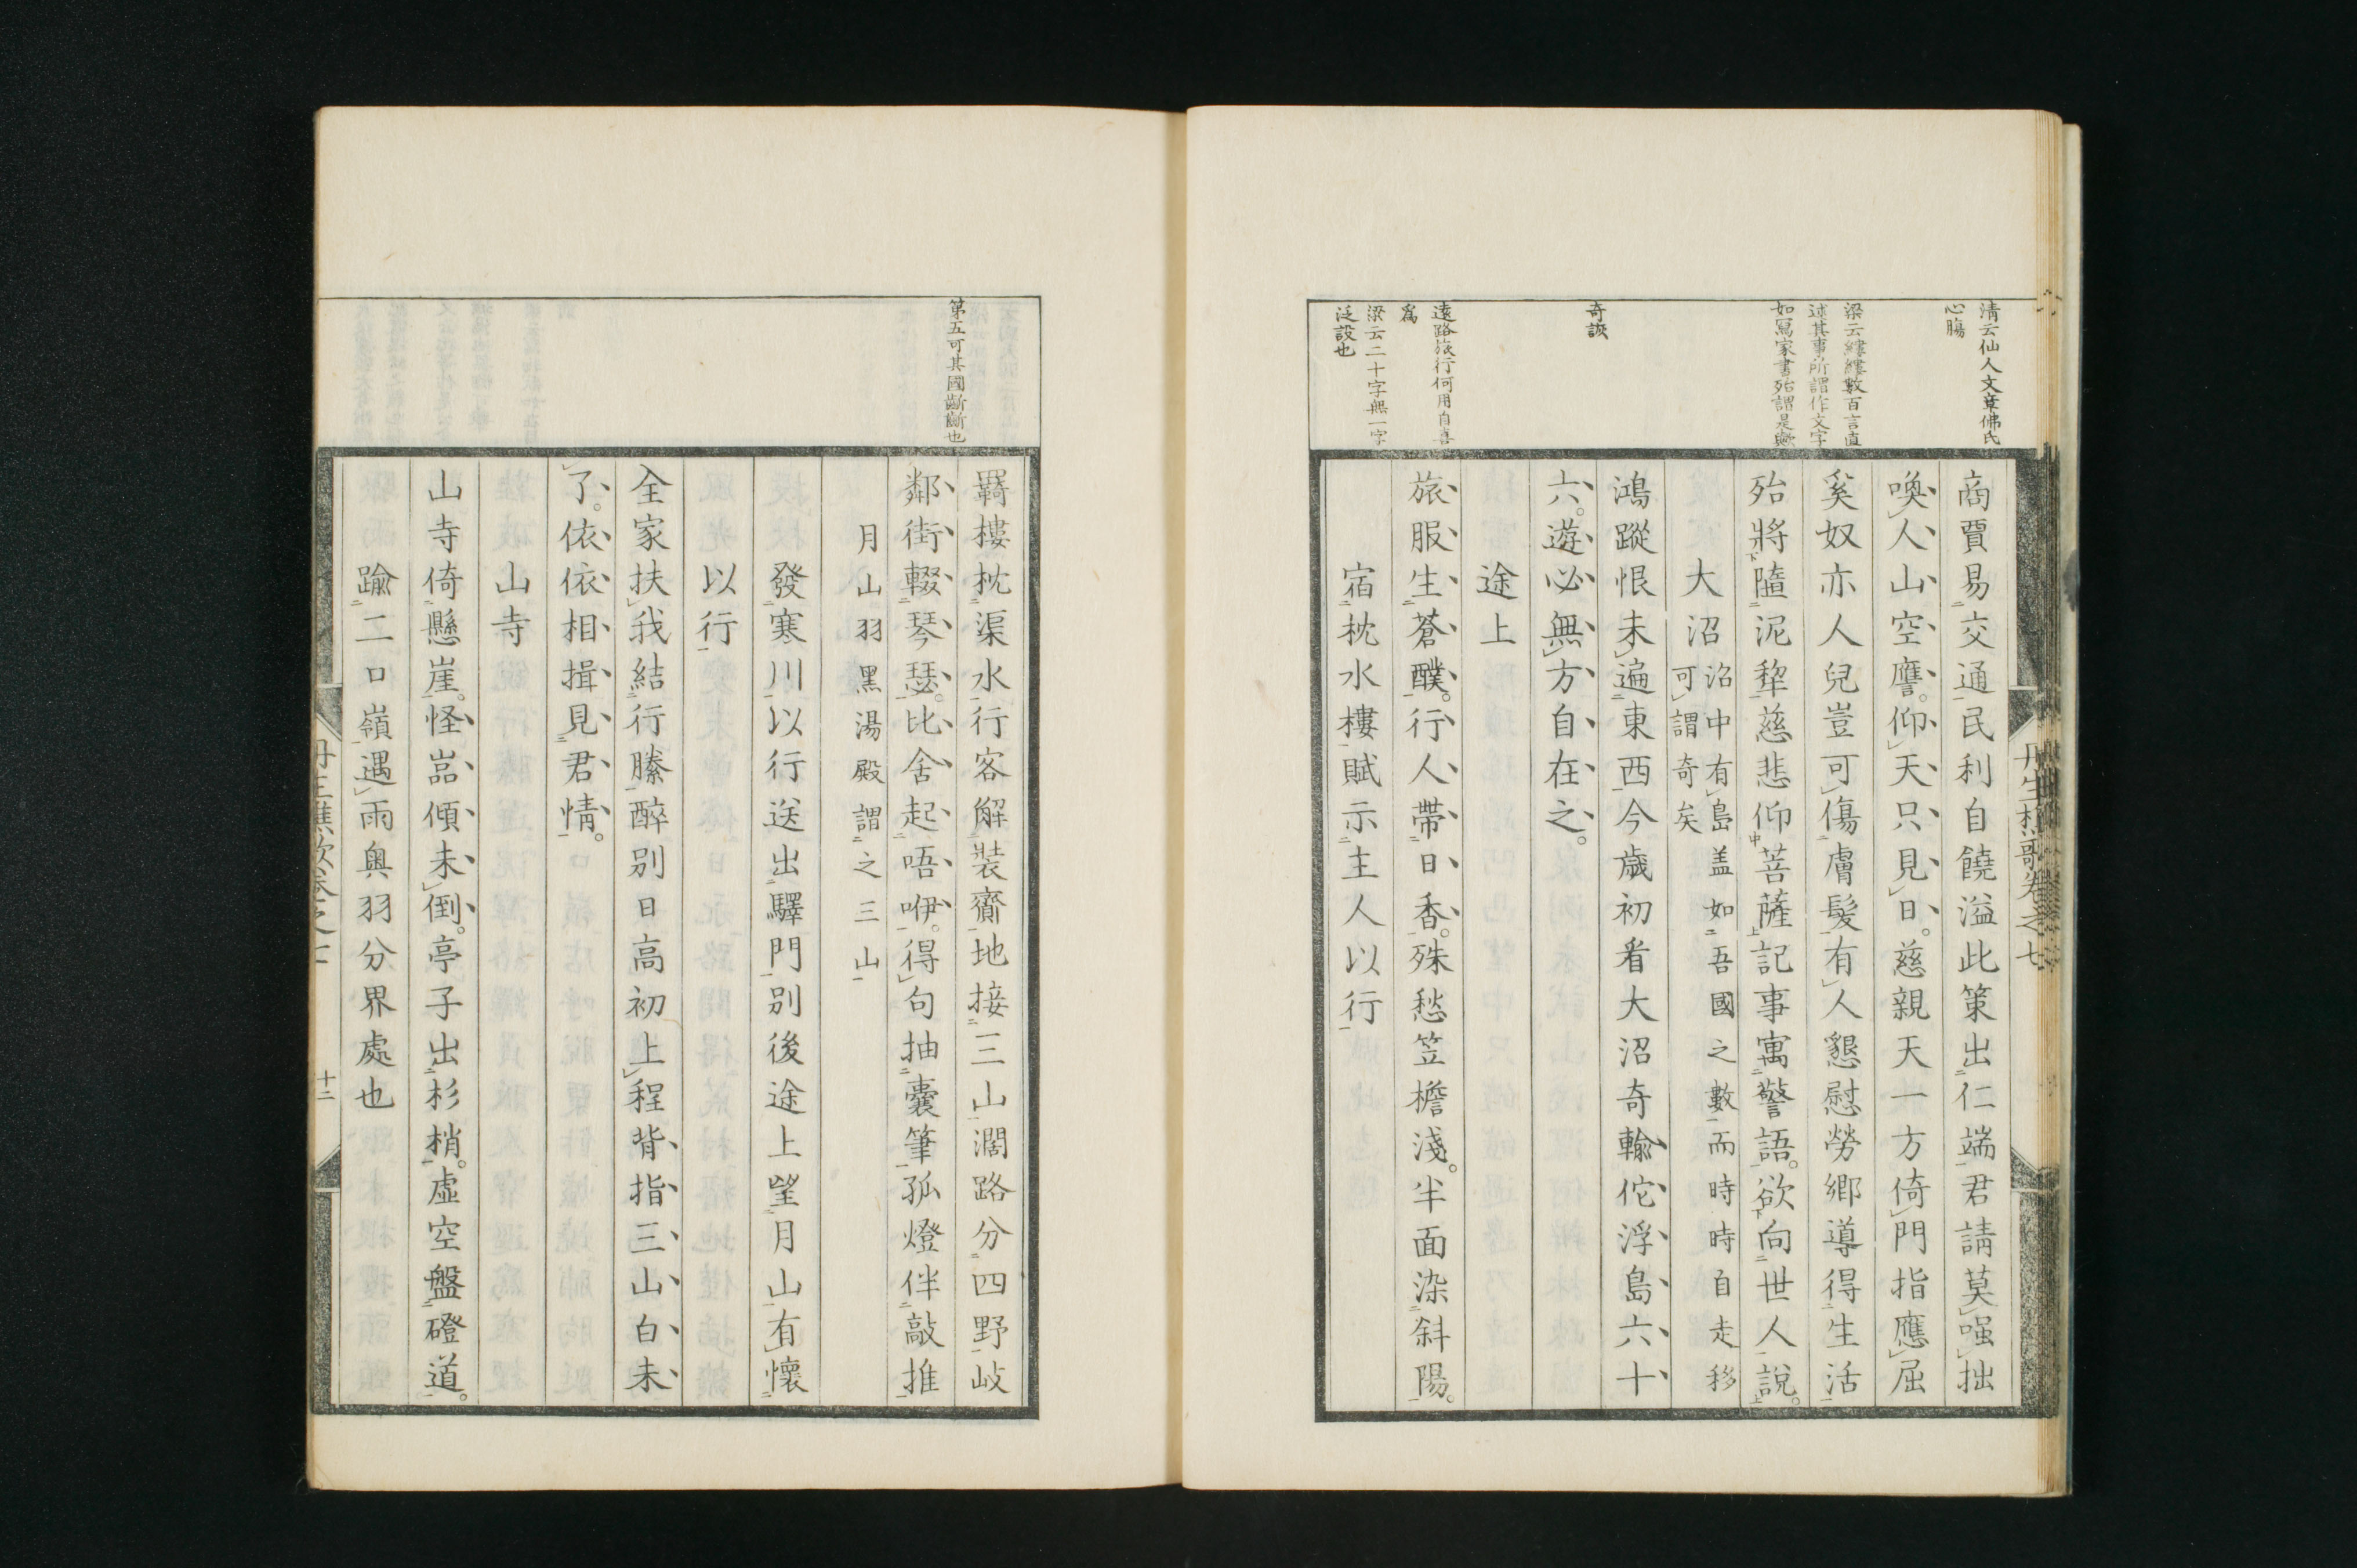 清云仙人文章佛氏
心膓
梁云縷縷數百言直
述其事所謂作文字
如寫家書殆謂是歟
奇詼
遠路旅行何用自喜
爲
梁云二十字無一字
泛設也
商賈易交通民利自饒溢此策出仁端君請莫嗤拙
喚人山空譍。仰天只見日。慈親天一方倚門指應屈
奚奴亦人兒豈可傷膚髮有人懇慰勞鄉導得生活
殆將墮泥犂慈悲仰菩薩記事寓警語。欲向世人說。
大沼
沼中有島盖如吾國之數而時時自走移
可謂奇矣
鴻蹤恨未遍東西今歲初看大沼奇輸佗浮島六十
六。遊必無方自在之。
途上
旅服生蒼醭。行人帶日香。殊愁笠檐淺。半面染斜陽。
宿枕水樓賦示主人以行
丹生樵歌卷之七
第五可其國齗齗也
羇樓枕渠水行客解裝齎地接三山濶路分四野岐
鄰街輟琴瑟。比舍起唔咿。得句抽囊筆孤燈伴敲推
月山羽黑湯殿謂之三山
發寒川以行送出驛門別後途上望月山有懷
以行
全家扶我結行縢醉別日高初上程背指三山白未
了。依依相揖見君情。
山寺
山寺倚懸崖。怪嵓傾未倒。亭子出杉梢。虛空盤磴道。
踰二口嶺遇雨奥羽分界處也
十二